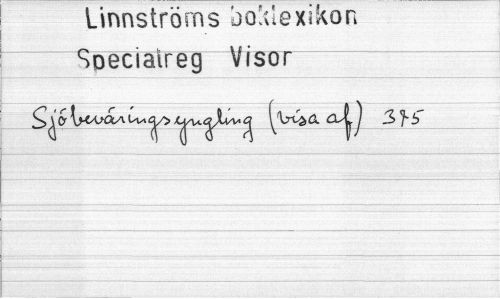 Linnströms boklexikon
Specialreg Visor
Sjöbeväringsyngling (visa af) 395